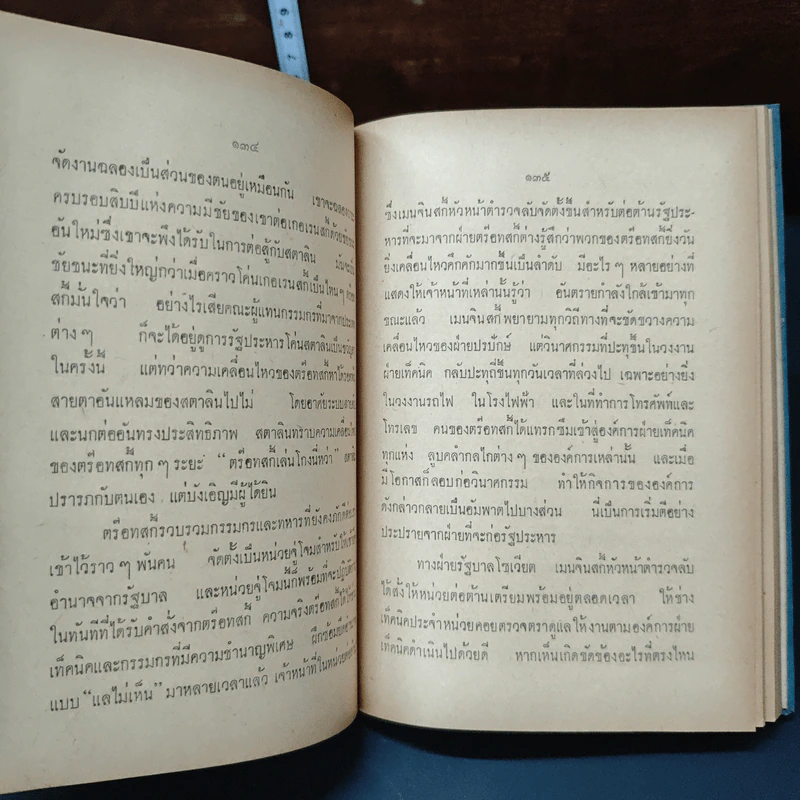 ๑๓๔
จัดงานฉลองเป็นส่วนของตนอยู่เหมือนกัน เขาจะฉลอง
ครบรอบสิบปีแห่งความมีชัยของเขาต่อเกอเรนสกี้ด้วย
อันใหม่ซึ่งเขาจะพึงได้รับในการต่อสู้กับสตาลิน
ชัยชนะที่ยิ่งใหญ่กว่าเมื่อคราวโค่นเกอเรนสกี้เป็นไหน ๆ
สกี้มั่นใจว่า อย่างไรเสียคณะผู้แทนกรรมกรที่มาจากประเทศ
ต่าง ๆ ก็จะได้อยู่ดูการรัฐประหารโค่นสตาลินเป็น
ในครั้งนี้ แต่ทว่าความเคลื่อนไหวของตร๊อทสกี้หาได้
สายตาอันแหลมของสตาลินไปไม่ โดยอาศัยระบบ
และนกต่ออันทรงประสิทธิภาพ สตาลินทราบความเคลื่อน
ของตร๊อทสกี้ทุก ๆ ระยะ “ตร๊อทสกี้เล่นโกงนี่หว่า”
ปรารภกับตนเอง แต่บังเอิญมีผู้ได้ยิน
ตร๊อทสกี้รวบรวมกรรมกรและทหารที่ยังคงภักดี
เข้าไว้ราว ๆ พันคน จัดตั้งเป็นหน่วยจู่โจมสำหรับ
อำนาจจากรัฐบาล และหน่วยจู่โจมนี้ก็พร้อมที่จะ
ในทันทีที่ได้รับคำสั่งจากตร๊อทสกี้ ความจริงตร๊อทสกี้ได้
เท็คนิคและกรรมกรที่มีความชำนาญพิเศษ ฝึกซ้อม
แบบ “แลไม่เห็น” มาหลายเวลาแล้ว เจ้าหน้าที่ในหน่วย
๑๓๕
ซึ่งเมนจินสกี้หัวหน้าตำรวจลับจัดตั้งขึ้นสำหรับต่อต้านรัฐประ-
หารที่จะมาจากฝ่ายตร๊อทสกี้ต่างรู้สึกว่าพวกของตร๊อทสกี้ยิ่งวัน
ยิ่งเคลื่อนไหวคึกคักมากขึ้นเป็นลำดับ มีอะไร ๆ หลายอย่างที่
แสดงให้เจ้าหน้าที่เหล่านั้นรู้ว่า อันตรายกำลังใกล้เข้ามาทุก
ขณะแล้ว เมนจินสกี้พยายามทุกวิถีทางที่จะขัดขวางความ
เคลื่อนไหวของฝ่ายปรปักษ์ แต่วินาศกรรมที่ปะทุขึ้นในวงงาน
ฝ่ายเท็คนิค กลับปะทุถี่ขึ้นทุกวันเวลาที่ล่วงไป เฉพาะอย่างยิ่ง
ในวงงานรถไฟ ในโรงไฟฟ้า และในที่ทำการโทรศัพท์และ
โทรเลข คนของตร๊อทสกี้ได้แทรกซึมเข้าสู่องค์การฝ่ายเท็คนิค
ทุกแห่ง ลูบคลำกลไกต่าง ๆ ขององค์การเหล่านั้น และเมื่อ
มีโอกาสก็ลอบก่อวินาศกรรม ทำให้กิจการขององค์การ
ดังกล่าวกลายเป็นอัมพาตไปบางส่วน นี่เป็นการเริ่มตีอย่าง
ประปรายจากฝ่ายที่จะก่อรัฐประหาร
ทางฝ่ายรัฐบาลโซเวียต เมนจินสกี้หัวหน้าตำรวจลับ
ได้สั่งให้หน่วยต่อต้านเตรียมพร้อมอยู่ตลอดเวลา ให้ช่าง
เท็คนิคประจำหน่วยคอยตรวจตราดูแลให้งานตามองค์การฝ่าย
เท็คนิคดำเนินไปด้วยดี หากเห็นเกิดขัดข้องอะไรที่ตรงไหน